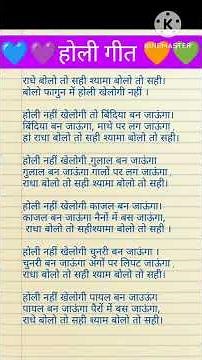 KINEMASTER
होली गीत
राधे बोलो तो सही श्यामा बोलो तो सही।
बोलो फागुन में होली खेलोगी नहीं ।
होली नहीं खेलोगी तो बिंदिया बन जाऊंगा।
बिंदिया बन जाऊंगा, माथे पर लग जाऊंगा ,
हां राधा बोलो तो सही श्यामा बोलो तो सही।
होली नहीं खेलोगी गुलाल बन जाऊंगा
गुलाल बन जाऊंगा गालों पर लग जाऊंगा ,
राधा बोलो तो सही श्यामा बोलो तो सही।
होली नहीं खेलोगी काजल बन जाऊंगा।
काजल बन जाऊंगा नैनों में बस जाऊंगा,
राधा बोलो तो सहीश्यामा बोलो तो सही ।
होली नहीं खेलोगी चुनरी बन जाऊंगा ।
चुनरी बन जाऊंगा अंगों पर लिपट जाऊंगा ,
राधा बोलो तो सही श्यामा बोलो तो सही।
होली नहीं खेलोगी पायल बन जाउऊंगा
पायल बन जाऊंगा पैरों में बस जाऊंगा,
राधे बोलो तो सही श्याम बोलो तो सही।